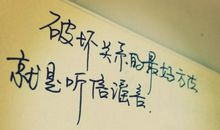 破坏关系的最好方法
就是听信谣言.